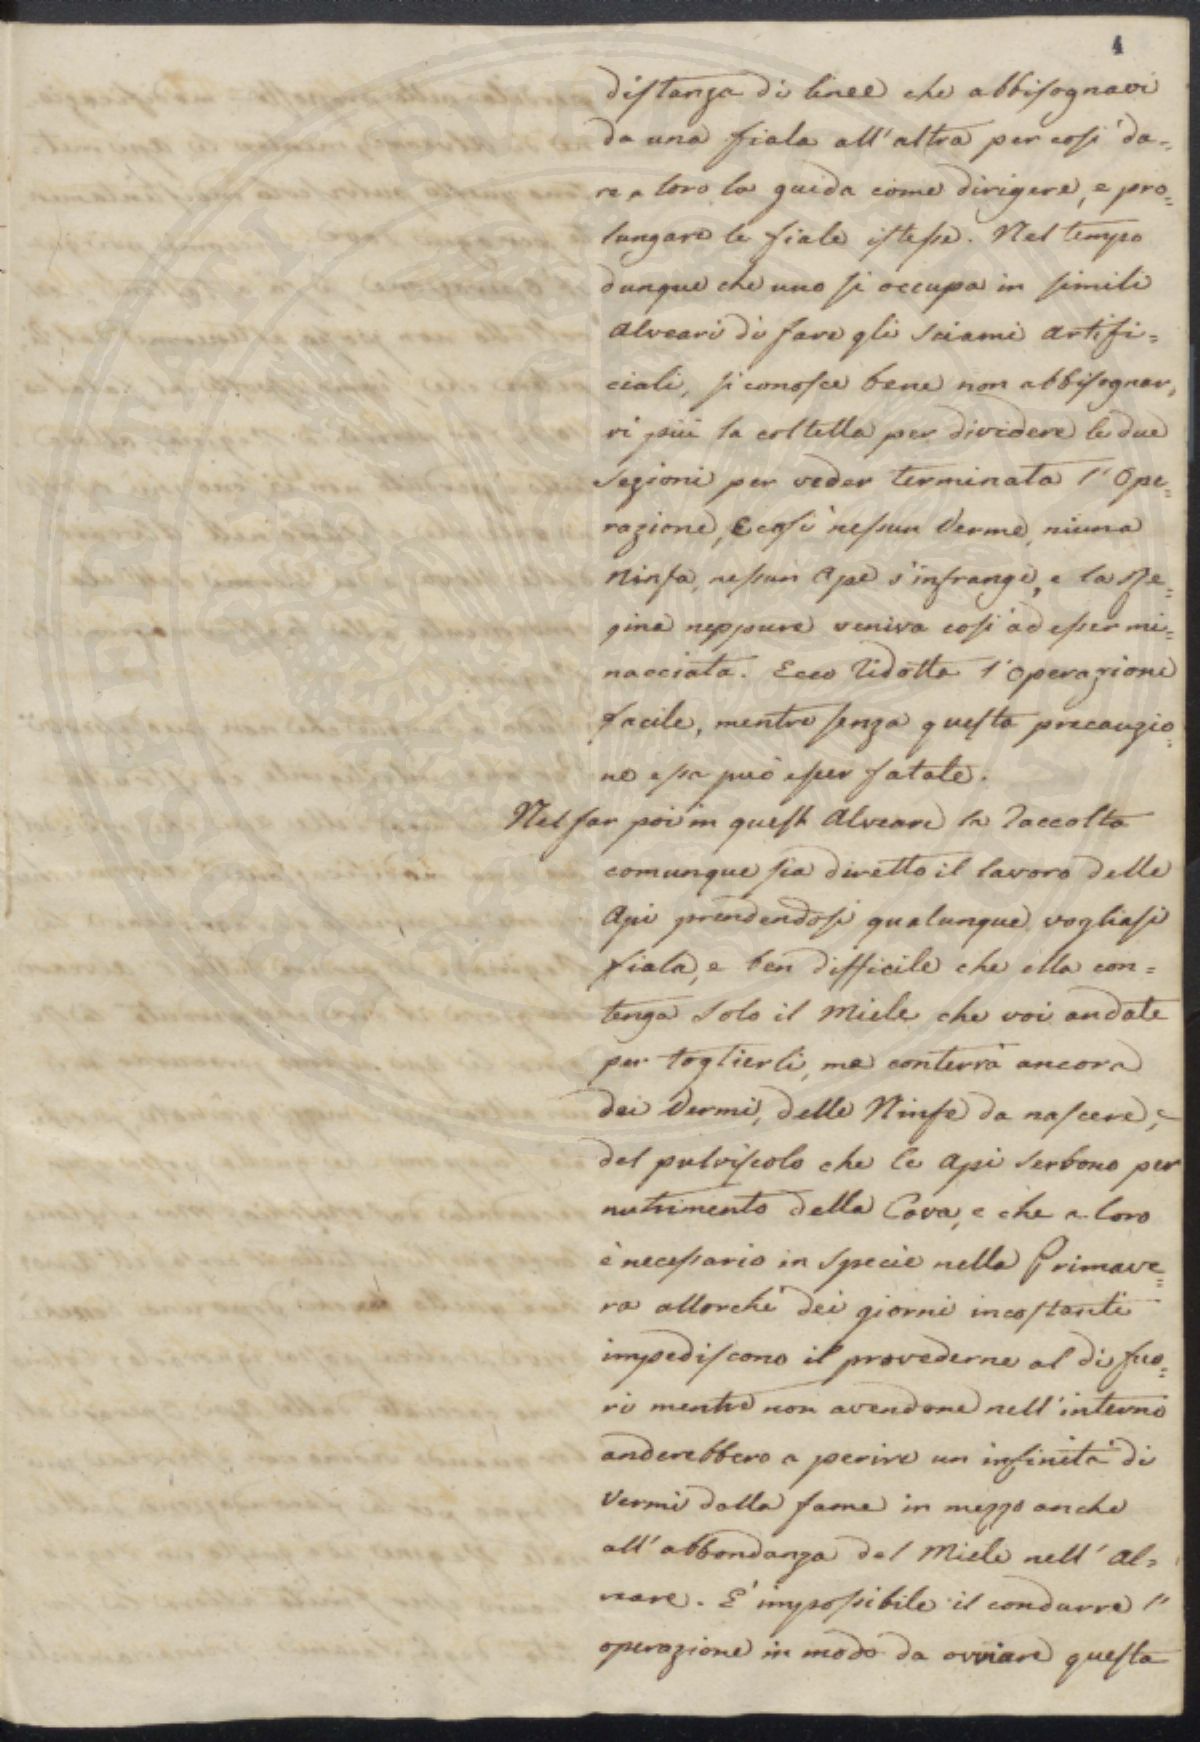 4
distanza di linee che abbisognavi
da una fiala all'altra per così da=
re a loro la guida come dirigere, e pro=
lungare le fiale istesse. Nel tempo
dunque che uno si occupa in simili
Alveari di fare gli sciami artifi=
ciali, si conosce bene non abbisognar=
vi più la coltella per dividere le due
sezioni per veder terminata l'Ope=
razione, E così nessun Verme, niuna
Ninfa, nessun Ape s'infrange, e la Re=
gina neppure veniva così ad esser mi=
nacciata. Ecco ridotta l'Operazione
facile, mentre senza questa precauzio=
ne essa può esser fatale.
Nel far poi in questi Alveari la raccolta
comunque sia diretto il lavoro delle
Api prendendosi qualunque vogliasi
fiala, e ben difficile che ella con=
tenga solo il Miele che voi andate
per toglierli, ma conterrà ancora
dei Vermi, delle Ninfe da nascere, e
del pulviscolo che le Api serbono per
nutrimento della Cova, e che a loro
è necessario in specie nella Primave=
ra allorchè dei giorni incostanti
impediscono il provederne al di fuo=
ri mentre non avendone nell'interno
anderebbero a perire un infinità di
Vermi dalla fame in mezzo anche
all'abbondanza del Miele nell'Al=
veare. E' impossibile il condurre l'
operazione in modo da ovviare questa